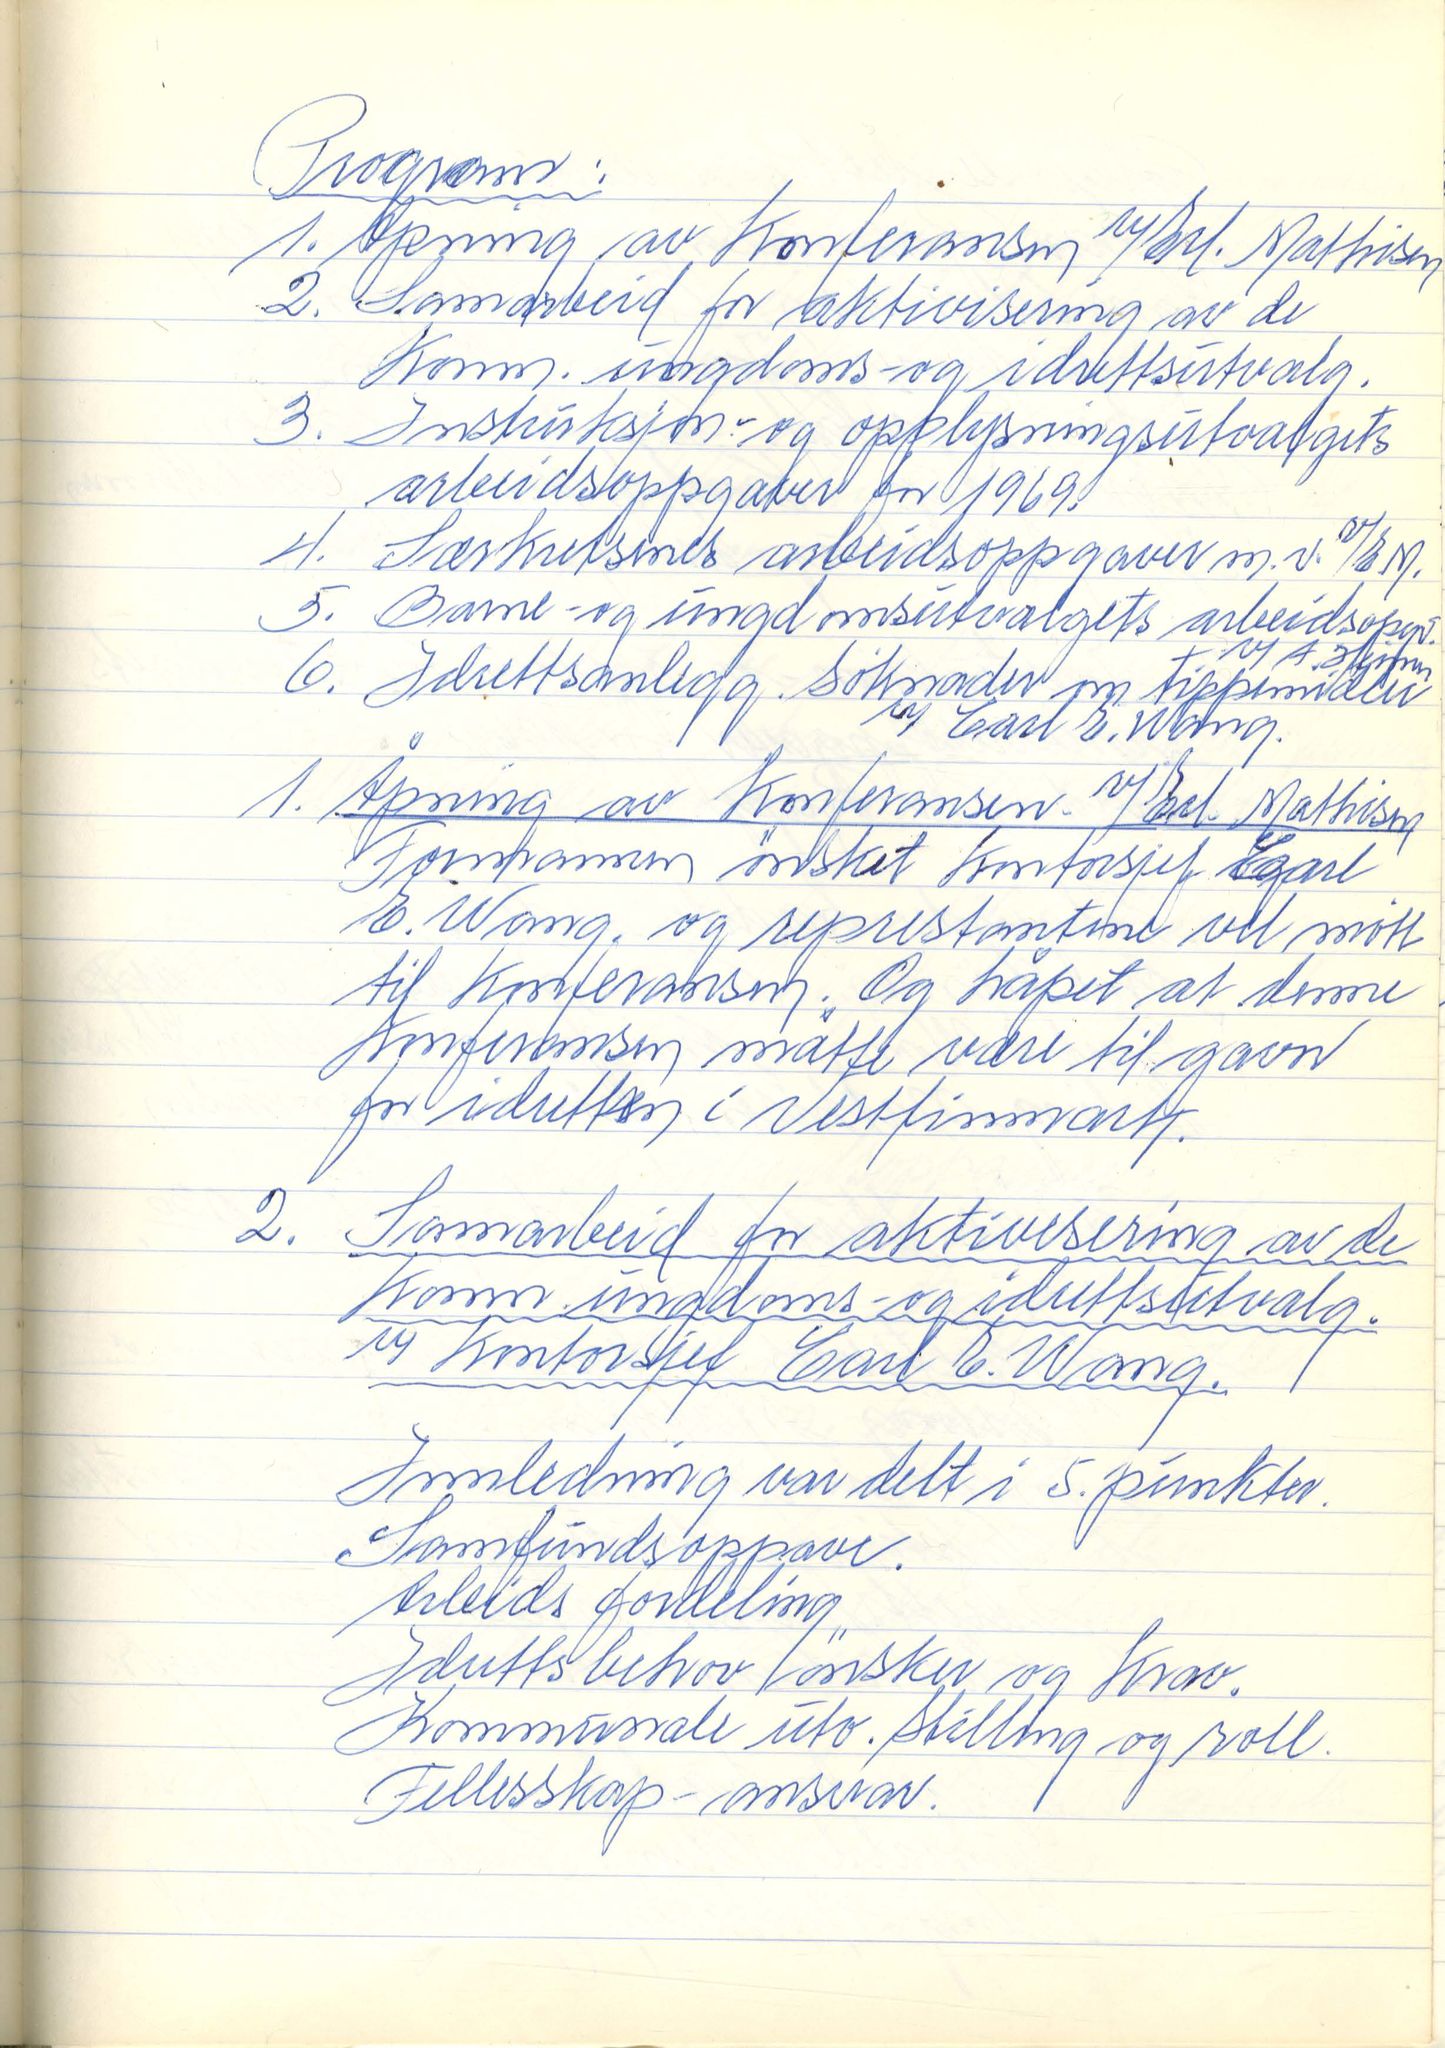 Program:
1. Åpning av Konferansen v/Erl. Mathisen
2. Samarbeid for aktivisering av de
Komm. ungdoms- og idrettsutvalg.
3. Instruksjon- og opplysningsutvalgets
arbeidsoppgaver for 1969.
4. Særkretsenes arbeidsoppgaver m.v. v/E M.
5. Barne- og ungdomsutvalgets arbeidsoppg.
v/ A.
6. Idrettsanlegg. Söknader om tippemidler
v/ Carl E. Wang.
1. Åpning av Konferansen. v/Erl. Mathisen
Formannen önsket Kontorsjef Carl
E. Wang. og represtantene vel mött
til Konferansen. Og håpet at denne
Konferansen måtte være til gavn
for idretten i Vestfinnmark.
2. Samarbeid for aktivesering av de
Komm. ungdoms- og idrettsutvalg.
v/ Kontorsjef Carl E. Wang.
Innledning var delt i 5. punkter.
Samfundsoppave.
Arbeids fordeling
Idretts behov önsker og Krav.
Kommunale utv. Stilling og roll.
Fellesskap - ansvar.